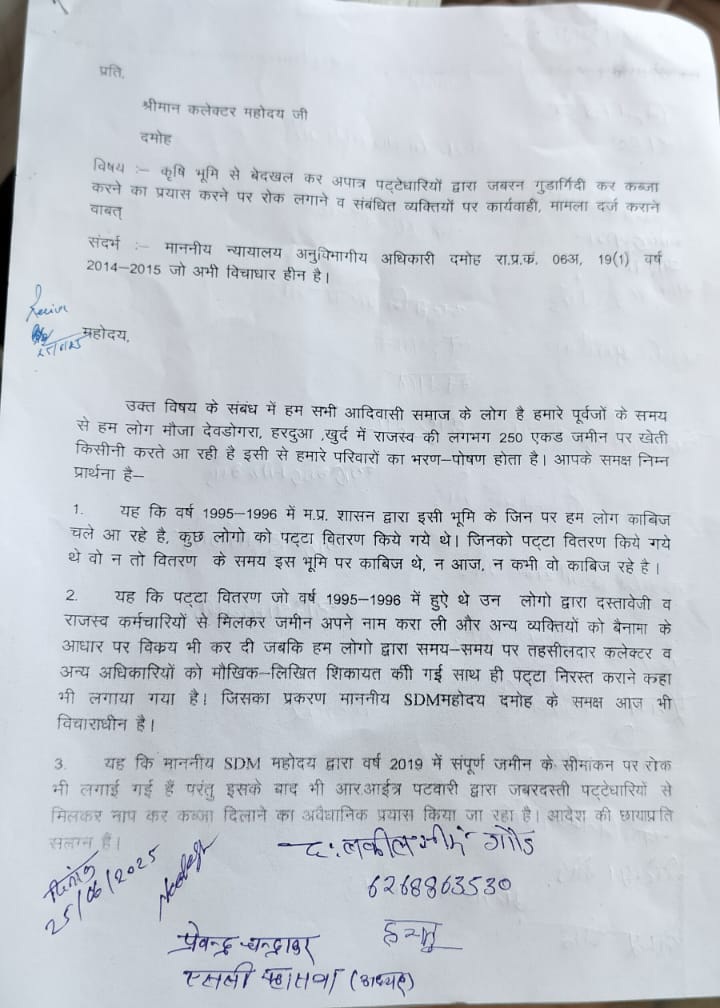 प्रति,
श्रीमान कलेक्टर महोदय जी
दमोह
विषय :– कृषि भूमि से बेदखल कर अपात्र पट्टेधारियों द्वारा जबरन गुडार्गिदी कर कब्जा
करने का प्रयास करने पर रोक लगाने व संबंधित व्यक्तियों पर कार्यवाही, मामला दर्ज कराने
वाबत्
संदर्भ :– माननीय न्यायालय अनुविभागीय अधिकारी दमोह रा.प्र.कं. 06अ, 19(1) वर्ष
2014–2015 जो अभी विचाधार हीन है।
25/6/25
महोदय,
उक्त विषय के संबंध में हम सभी आदिवासी समाज के लोग है हमारे पूर्वजों के समय
से हम लोग मौजा देवडोगरा, हरदुआ ,खुर्द में राजस्व की लगभग 250 एकड जमीन पर खेती
किसीनी करते आ रही है इसी से हमारे परिवारों का भरण–पोषण होता है। आपके समक्ष निम्न
प्रार्थना है–
1. यह कि वर्ष 1995–1996 में म.प्र. शासन द्वारा इसी भूमि के जिन पर हम लोग काबिज
चले आ रहे है, कुछ लोगो को पट्टा वितरण किये गये थे। जिनको पट्टा वितरण किये गये
थे वो न तो वितरण के समय इस भूमि पर काबिज थे, न आज, न कभी वो काबिज रहे है।
2. यह कि पट्टा वितरण जो वर्ष 1995–1996 में हुऐ थे उन लोगो द्वारा दस्तावेजी व
राजस्व कर्मचारियों से मिलकर जमीन अपने नाम करा ली और अन्य व्यक्तियों को बैनामा के
आधार पर विक्रय भी कर दी जबकि हम लोगो द्वारा समय–समय पर तहसीलदार कलेक्टर व
अन्य अधिकारियों को मौखिक–लिखित शिकायत कीी गई साथ ही पट्टा निरस्त कराने कहा
भी लगाया गया है। जिसका प्रकरण माननीय SDMमहोदय दमोह के समक्ष आज भी
विचाराधीन है।
3. यह कि माननीय SDM महोदय द्वारा वर्ष 2019 में संपूर्ण जमीन के सीमांकन पर रोक
भी लगाई गई हैं परंतु इसके बाद भी आर.आईत्र पटवारी द्वारा जबरदस्ती पट्टेधारियों से
मिलकर नाप कर कब्जा दिलाने का अवैधानिक प्रयास किया जा रहा है। आदेश की छायाप्रति
सलग्न है।
दिनांक
25/06/2025
6268863530
(अध्यक्ष)